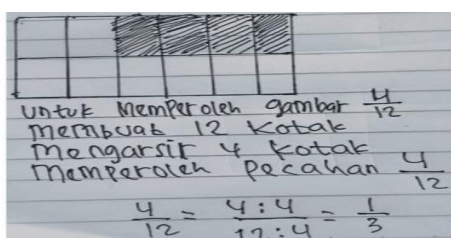 untuk Memperoleh gambar 4/12
Membuat 12 kotak
Mengarsir 4 kotak
Memperoleh Pecahan 4/12
4/12 = 4:4/12:4 = 1/3